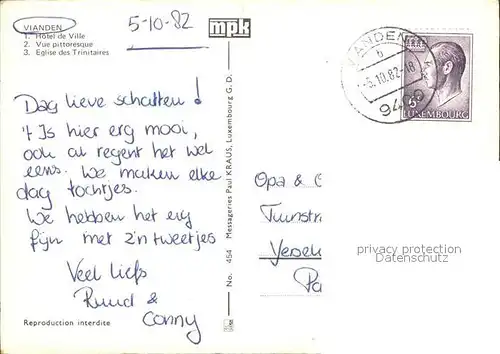 VIANDEN
1. Hôtel de Ville
2. Vue pittoresque
3. Eglise des Trinitaires
5-10-82
mpk
VIANDEN
b
-5.10.82-18
9400
LUXEMBOURG
Dag lieve schatten!
't Is hier erg mooi,
ook al regent het wel
eens. We maken elke
dag tochtjes.
We hebben het erg
fijn met z'n tweetjes
Veel liefs
Ruud &
Conny
Reproduction interdite
No. 454 Messageries Paul KRAUS, Luxembourg G. D.
Opa &
Tuinstr
privacy protection
Datenschutz